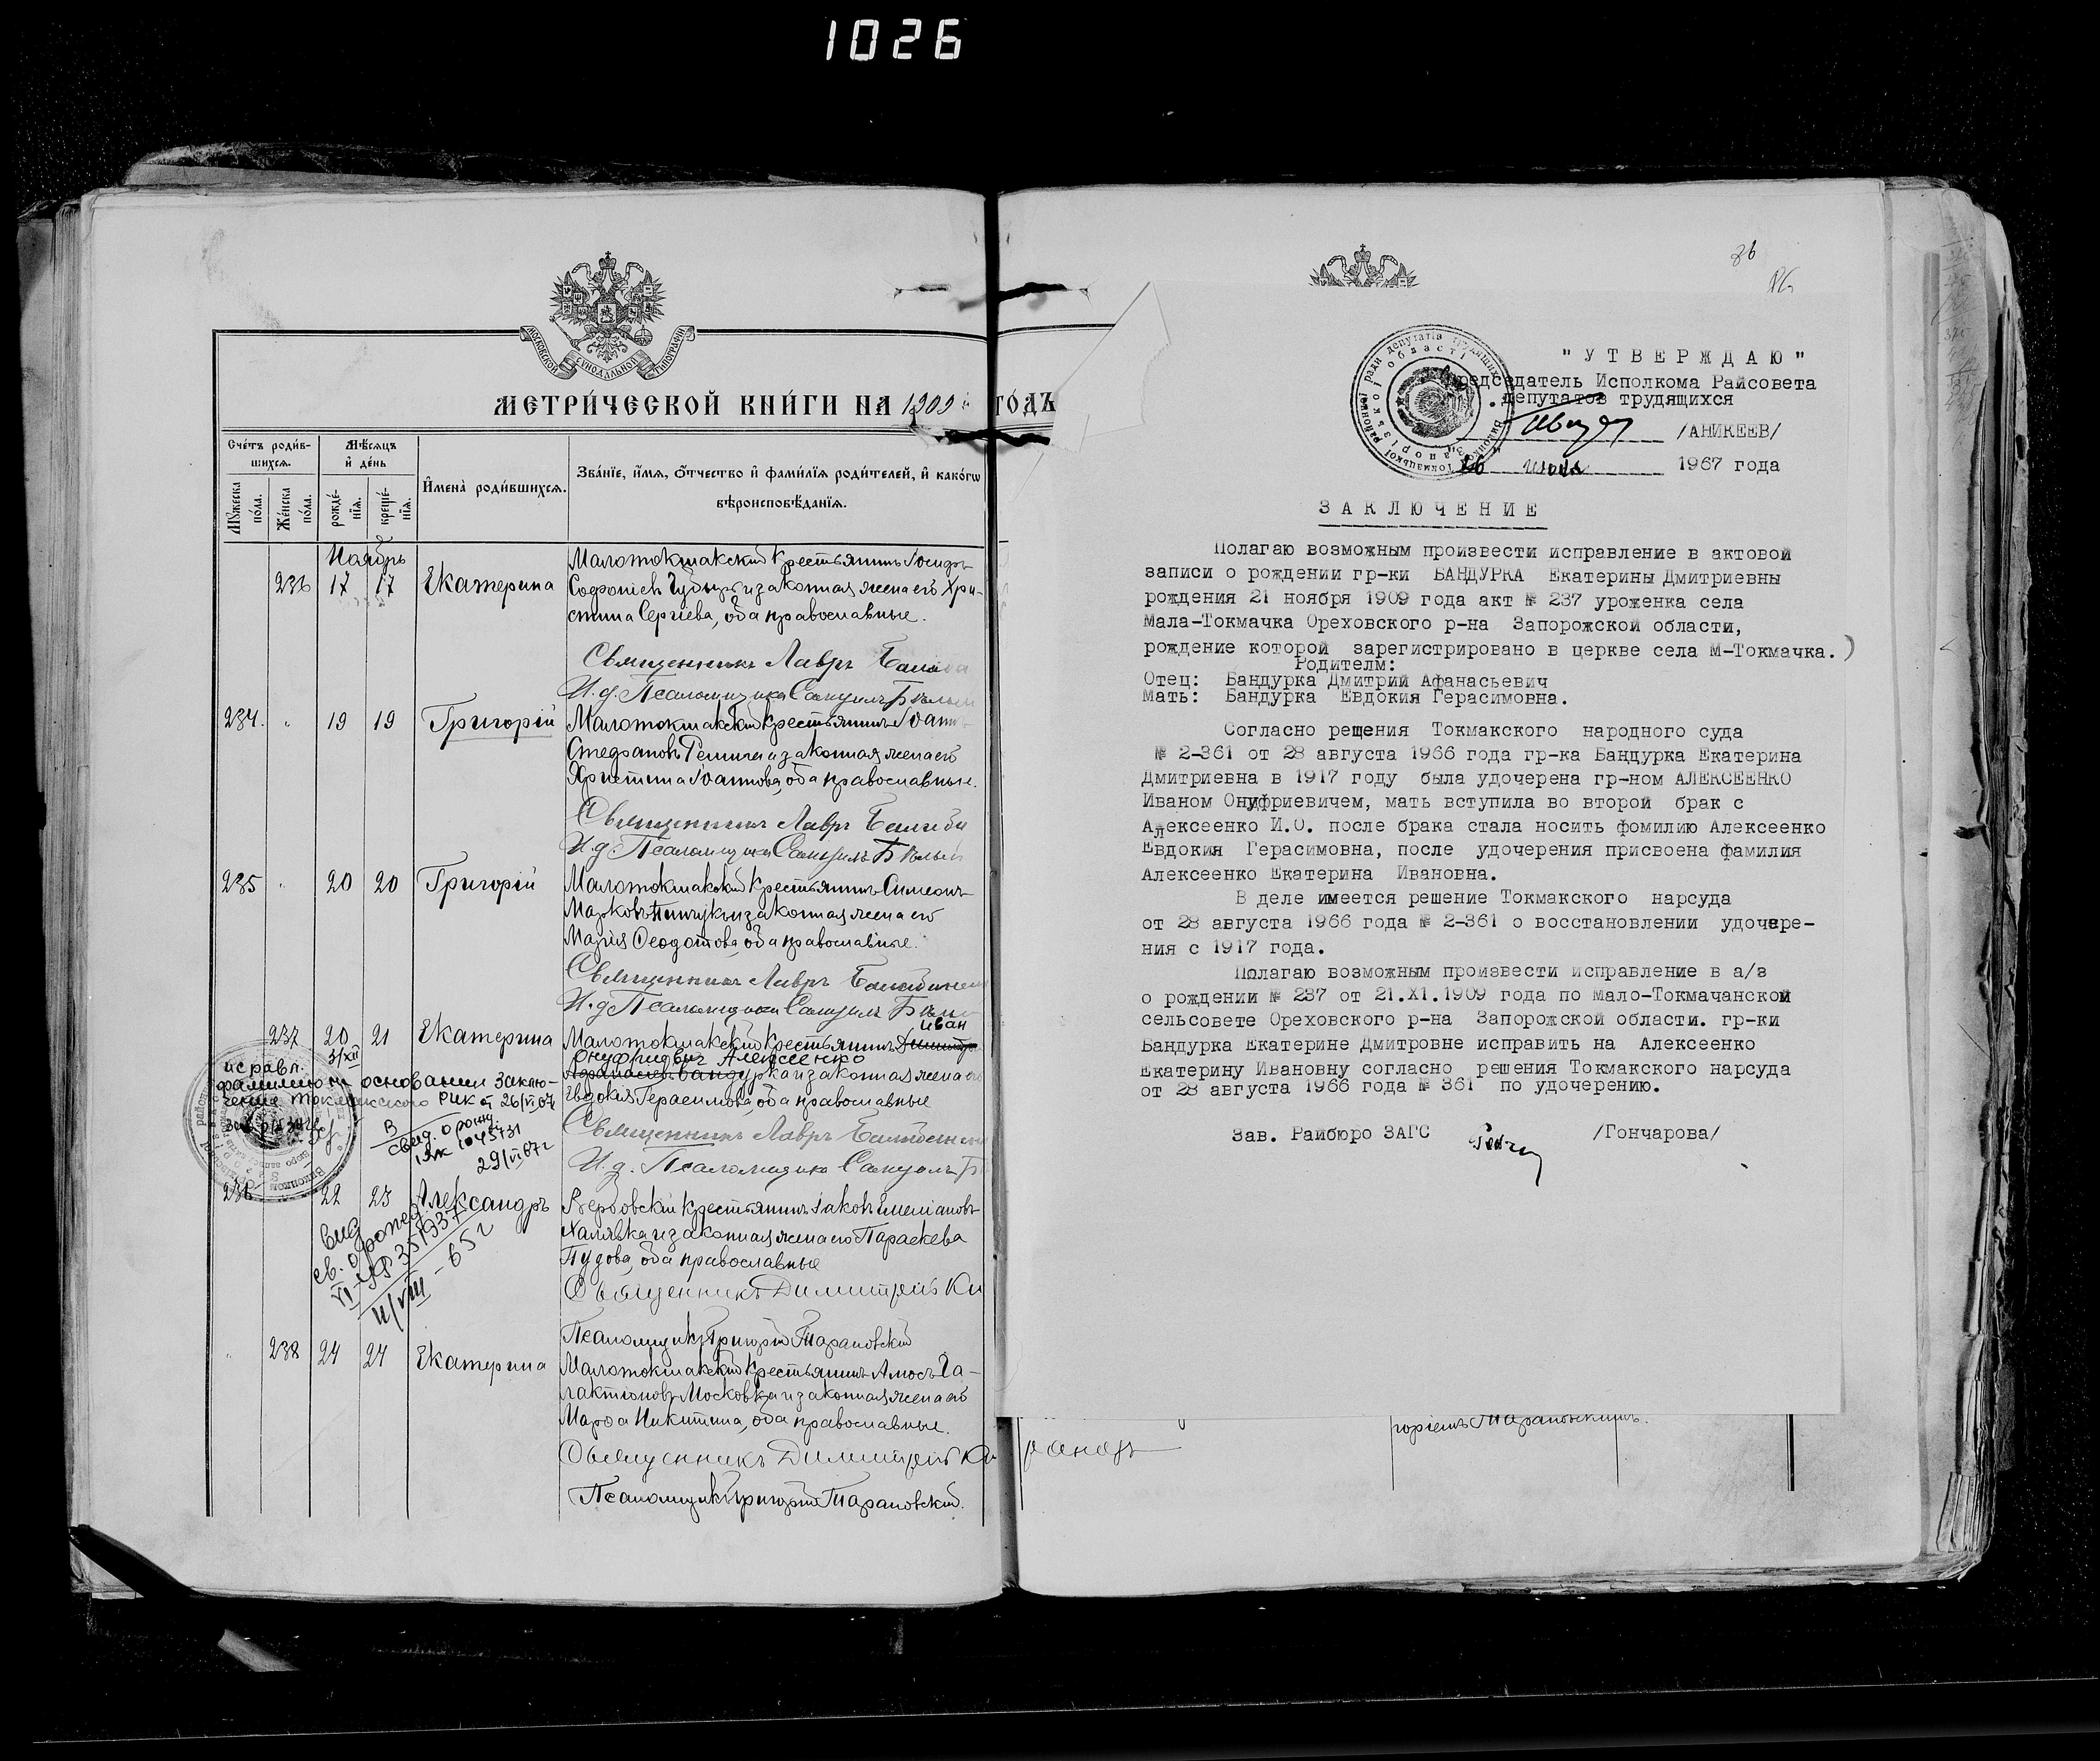 1026
МОСКОВСКОЙ СѴНОДАЛЬНОЙ ТѴПОГРАФІИ
МЕТРИ́ЧЕСКОЙ КНИ́ГИ НА 1909 й ГО́ДЪ
Сче́тъ роди́в-
шихсѧ.
Мѣ́сѧцъ
и҆ де́нь
И҆мена̀ роди́вшихсѧ.
Зва́нїе, и҆́мѧ, ѻ҆́тчество и҆ фами́лїѧ роди́телей, и҆ како́гѡ
вѣроисповѣ́данїѧ.
Мꙋ́жеска по́ла.
Же́нска по́ла.
рожде́-
нїѧ.
креще́-
нїѧ.
Ноябрь
236 17 17 Екатерина
Малотокмакский крестьянинъ Іосифъ
Софроніевъ и законная жена его Хри-
стина Сергіева, оба православные.
Священникъ Лавръ
И.д. Псаломщика Самуилъ Бѣлый
234. " 19 19 Григорій
Малотокмакский крестьянинъ Іоаннъ
Стефановъ и законная жена его
Христина Іоаннова, оба православные.
Священникъ Лавръ
И.д. Псаломщика Самуилъ Бѣлый
235 " 20 20 Григорій
Малотокмакский крестьянинъ Симеонъ
Марковъ и законная жена его
Марія Феодотова, оба православные.
Священникъ Лавръ
И.д. Псаломщика Самуилъ
237 20 21 Екатерина
3/XII
Иван
Малотокмакский крестьянинъ Димитрій
Онуфриевич Алексеенко
Афанасьевъ Бандурка и законная жена его
Евдокія Герасимова, оба православные
исправл.
фамилию на основании заклю-
чение Токмакского РИК от 26/VI 67
В
свид. о рожд.
1045731
29/VI 67 г
Священникъ Лавръ
И.д. Псаломщика Самуилъ
236 22 23 Александръ
Вербовский крестьянинъ Іаковъ Емеліановъ
Халявка и законная жена его Параскева
Пудова, оба православные
св. о рожд.
II/VIII - 65 г
Священникъ Димитрій
Псаломщикъ Григорій Тарановский
" 238 24 24 Екатерина
Малотокмакский крестьянинъ Амосъ Га-
лактіоновъ Московка и законная жена его
Марфа Никитина, оба православные.
Священникъ Димитрій
Псаломщикъ Григорій Тарановский.
86
"УТВЕРЖДАЮ"
Председатель Исполкома Райсовета
депутатов трудящихся
/АНИКЕЕВ/
"26 июня 1967 года
ЗАКЛЮЧЕНИЕ
Полагаю возможным произвести исправление в актовой
записи о рождении гр-ки БАНДУРКА Екатерины Дмитриевны
рождения 21 ноября 1909 года акт № 237 уроженка села
Мала-Токмачка Ореховского р-на Запорожской области,
рождение которой зарегистрировано в церкве села М-Токмачка.)
Родителм:
Отец: Бандурка Дмитрий Афанасьевич
Мать: Бандурка Евдокия Герасимовна.
Согласно рещения Токмакского народного суда
№ 2-361 от 28 августа 1966 года гр-ка Бандурка Екатерина
Дмитриевна в 1917 году была удочерена гр-ном АЛЕКСЕЕНКО
Иваном Онуфриевичем, мать вступила во второй брак с
Алексеенко И.О. после брака стала носить фомилию Алексеенко
Евдокия Герасимовна, после удочерения присвоена фамилия
Алексеенко Екатерина Ивановна.
В деле имеется решение Токмакского нарсуда
от 28 августа 1966 года № 2-361 о восстановлении удочере-
ния с 1917 года.
Полагаю возможным произвести исправление в а/з
о рождении № 237 от 21.XI.1909 года по Мало-Токмачанской
сельсовете Ореховского р-на Запорожской области. гр-ки
Бандурка Екатерине Дмитровне исправить на Алексеенко
Екатерину Ивановну согласно решения Токмакского нарсуда
от 28 августа 1966 года № 361 по удочерению.
Зав. Райбюро ЗАГС /Гончарова/
горіемъ Тарановскимъ.